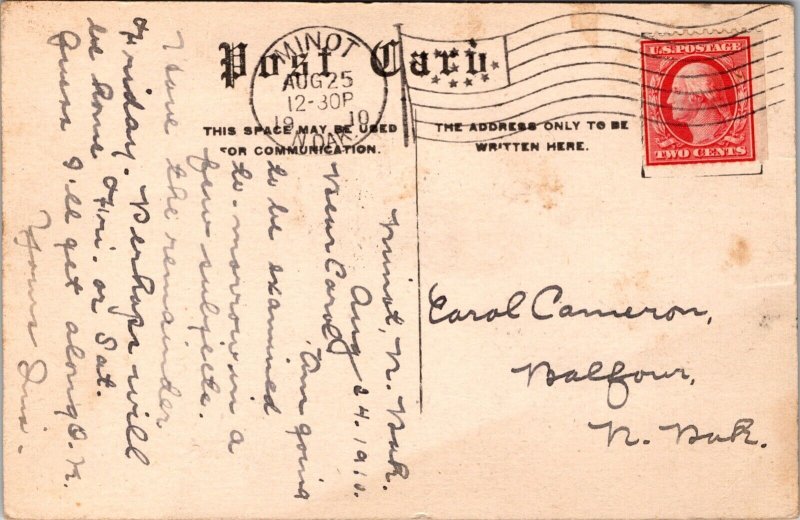 Post Card
THIS SPACE MAY BE USED
FOR COMMUNICATION.
THE ADDRESS ONLY TO BE
WRITTEN HERE.
MINOT
AUG 25
12-30P
1910
N. DAK.
U.S. POSTAGE
TWO CENTS
Minot, N. Dak.
Aug 24. 1910.
Dear Carol,
Am going
to be examined
to-morrow in a
few subjects.
Have the remainder
Friday. Perhaps will
be home Fri. or Sat.
Guess I'll get along O.K.
Yours Ina.
Carol Cameron,
Balfour,
N. Dak.